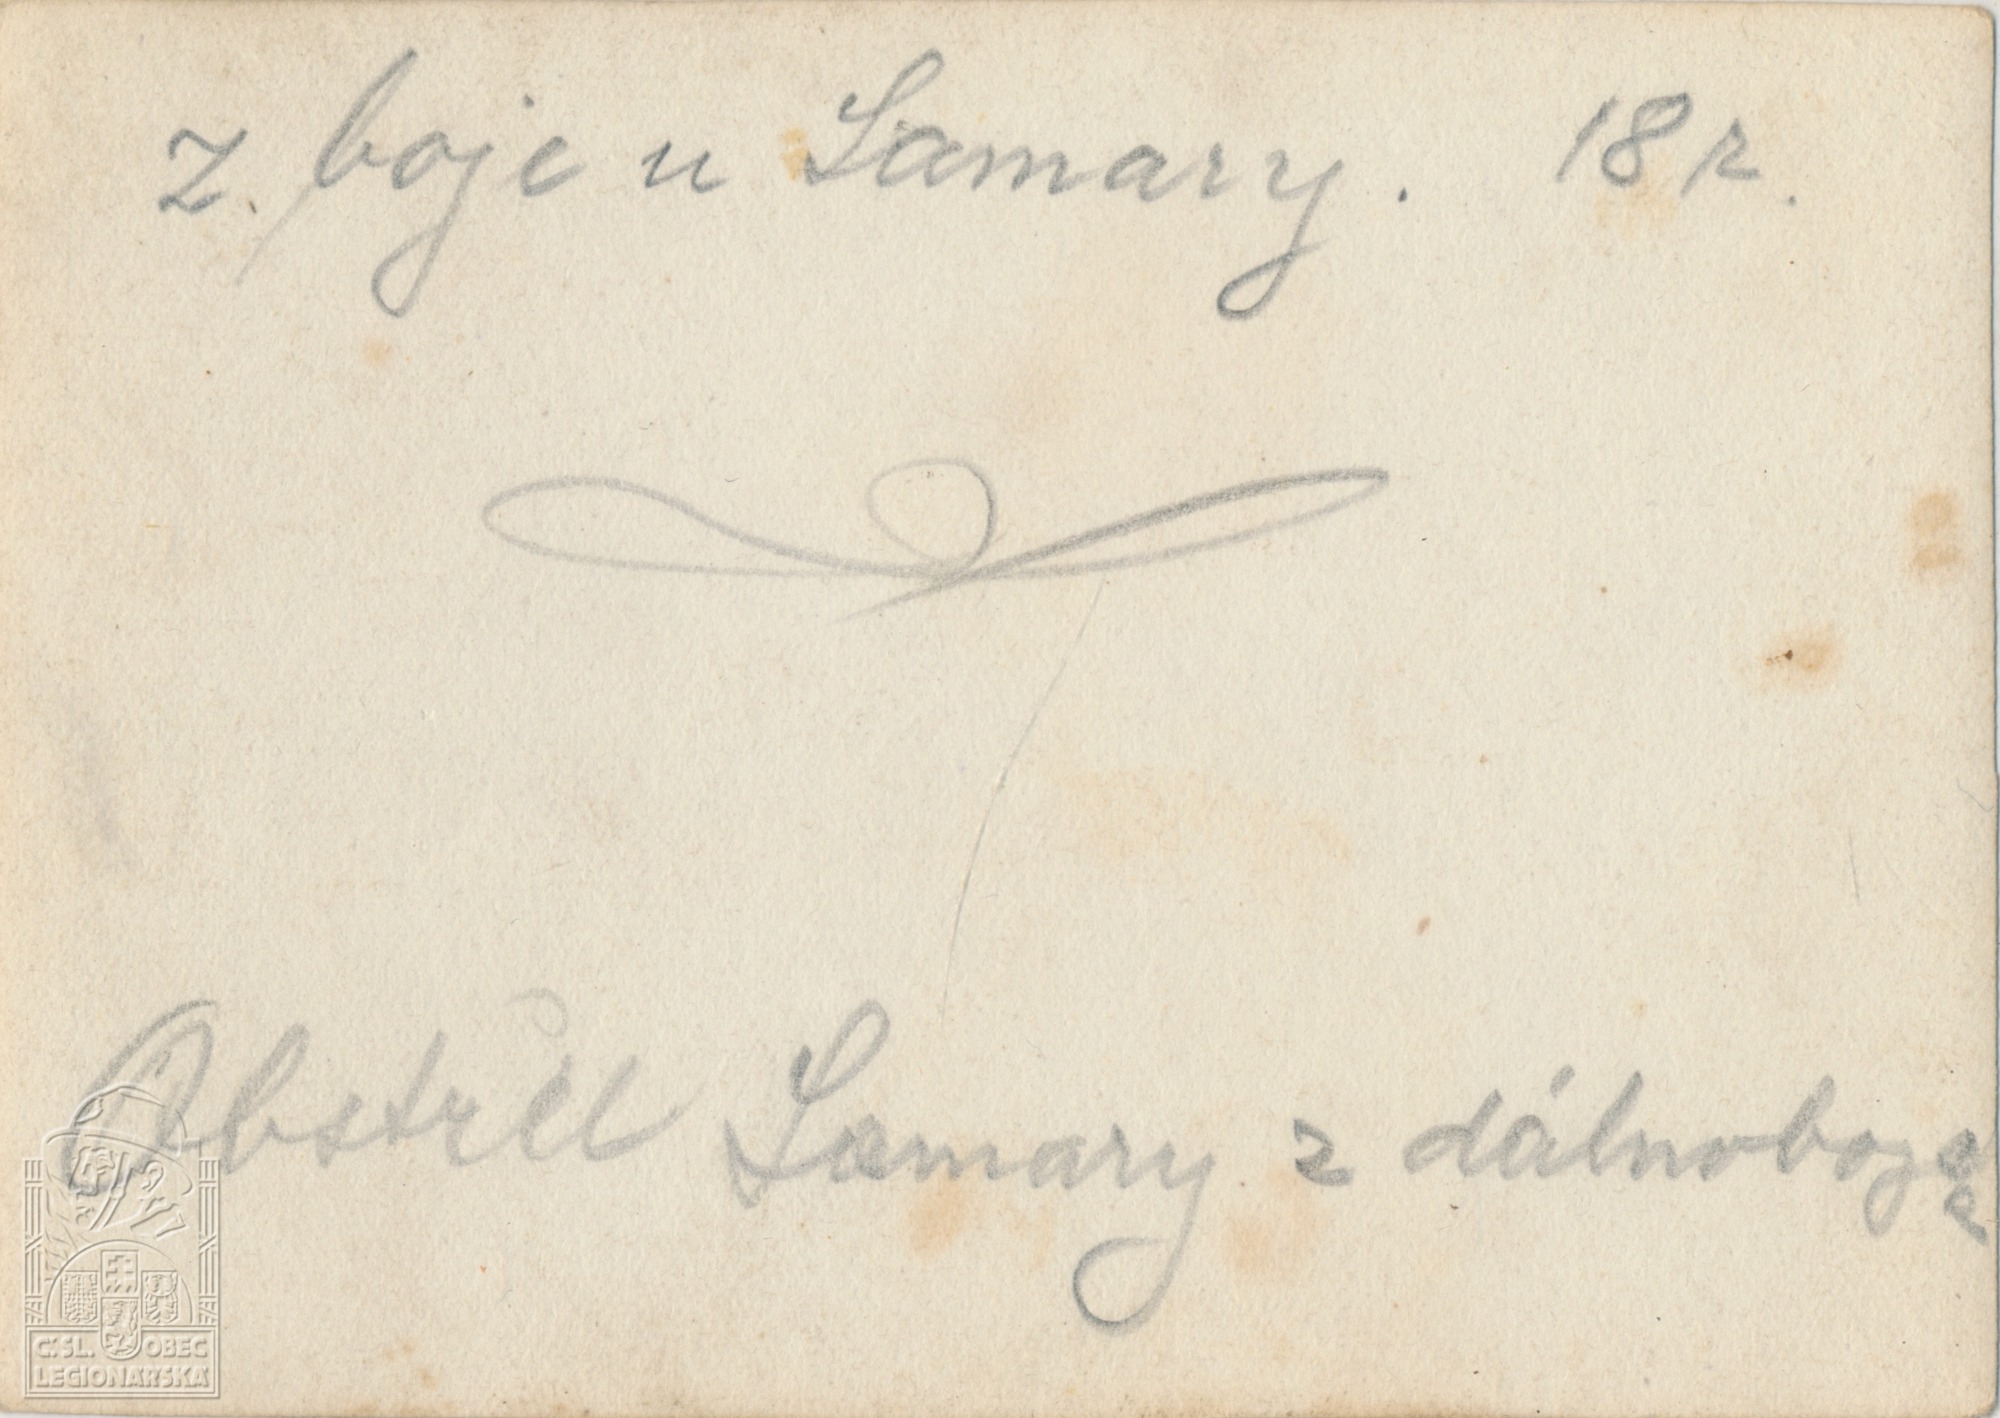 z boje u Samary. 18 r.
Obstřel Samary z dálnoboj
Č.SL. OBEC
LEGIONÁŘSKÁ